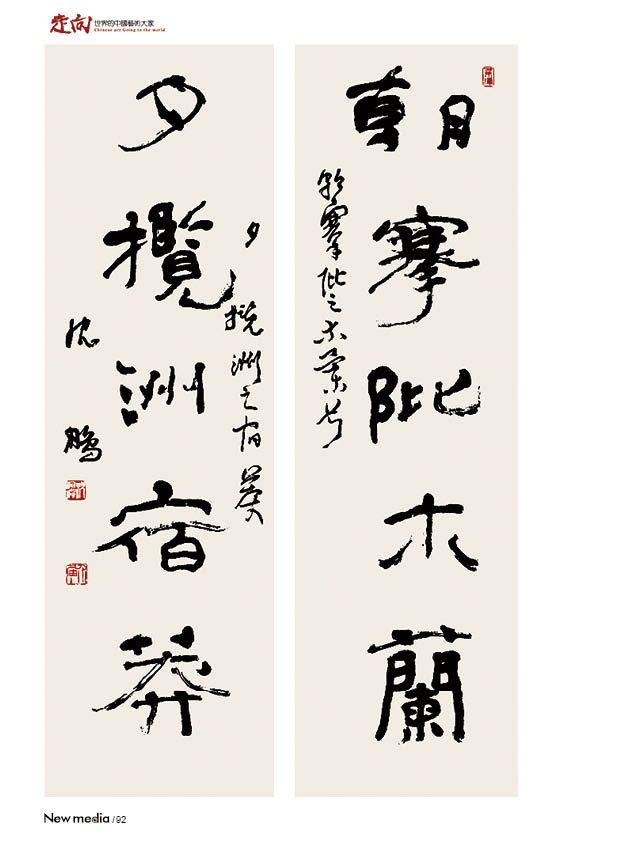 走向 世界的中國藝術大家
Chinese art Going to the world
朝搴阰木蘭
朝搴阰之木蘭兮
夕攬洲宿莽
夕攬洲之宿莽
沈鵬
New media /92